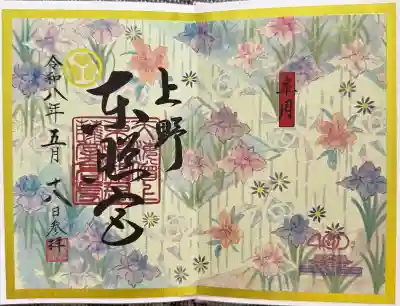 皐月
上野
東照宮
令和八年五月十八日参拝